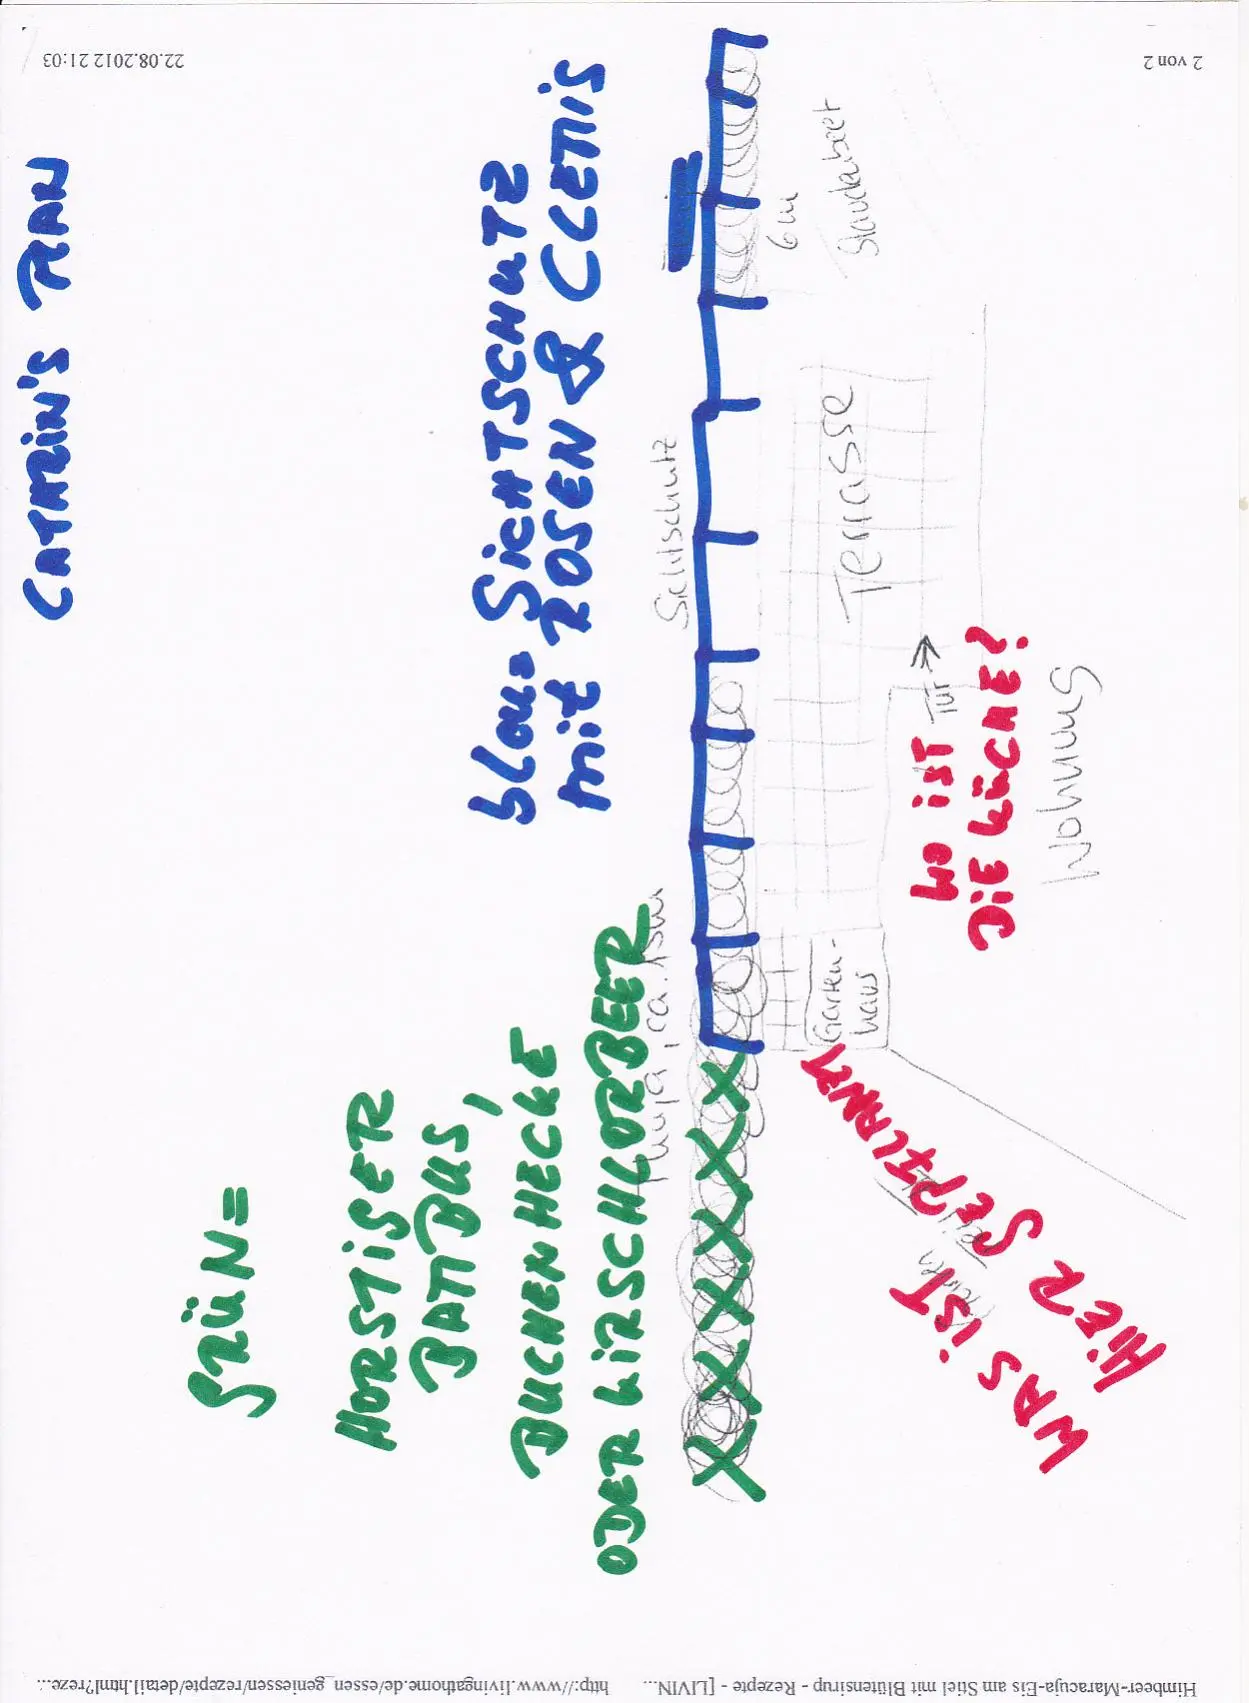 CATHRIN'S PLAN
blau = SICHTSCHUTZ
mit ROSEN & CLEMIS
GRÜN =
HORSTIGER
BAMBUS,
BUCHENHECKE
ODER KIRSCHLORBEER
Sichtschutz
Thuja, ca. 15m
6m
Staudenbeet
Terrasse
Tür →
Garten-
haus
WO IST
DIE KÜCHE?
Wohnung
WAS IST
HIER GEPFLANZT
Himbeer-Maracuja-Eis am Stiel mit Blütensirup - Rezepte - [LIVIN...
http://www.livingathome.de/essen_geniessen/rezepte/detail.html?reze...
2 von 2
22.08.2012 21:03